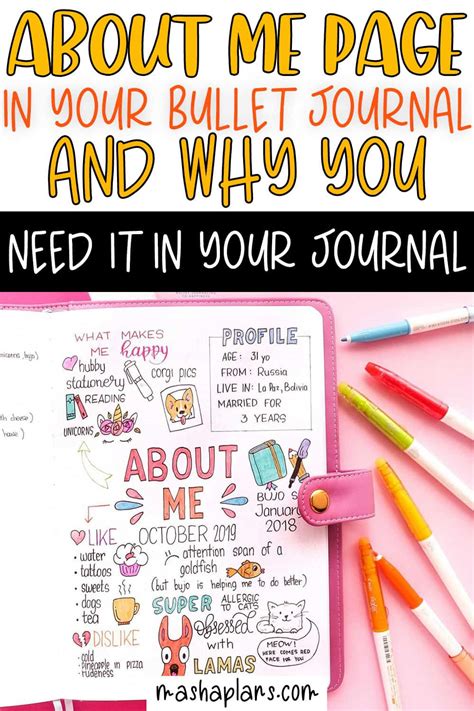 ABOUT ME PAGE
IN YOUR BULLET JOURNAL
AND WHY YOU
NEED IT IN YOUR JOURNAL
WHAT MAKES
ME happy
hubby
stationery
READING
UNICORNS
corgi pics
PROFILE
AGE: 31 yo
FROM: Russia
LIVE IN: La Paz, Bolivia
MARRIED FOR
3 YEARS
ABOUT
ME
OCTOBER 2019
BUJO S
January
2018
LIKE
water
tattoos
sweets
dogs
tea
attention span of a
goldfish
(but bujo is helping me to do better)
SUPER ALLERGIC
TO CATS
MEOW!
HERE COMES RED
FACE FOR YOU
Obsessed
with
LAMAS
DISLIKE
cold
pineapple in pizza
rudeness
house )
mashaplans.com